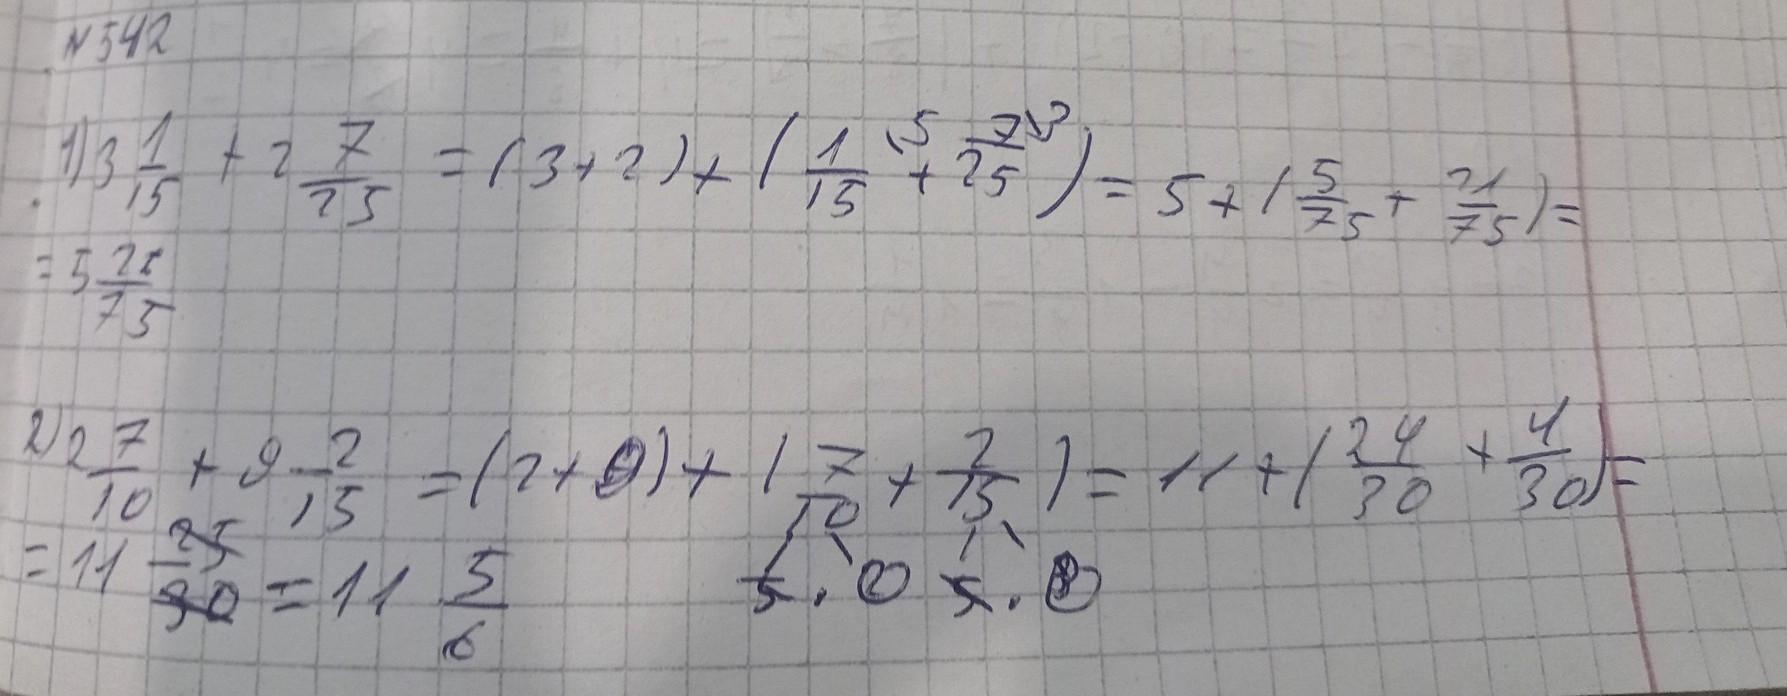 №542
1) 3 1/15 + 2 7/25 = (3+2) + (1/15 \5 + 7/25 \3) = 5 + (5/75 + 21/75) =
= 5 26/75
2) 2 7/10 + 9 2/15 = (2+9) + (7/10 + 2/15) = 11 + (21/30 + 4/30) =
= 11 25/30 = 11 5/6
5 · 2 5 · 3